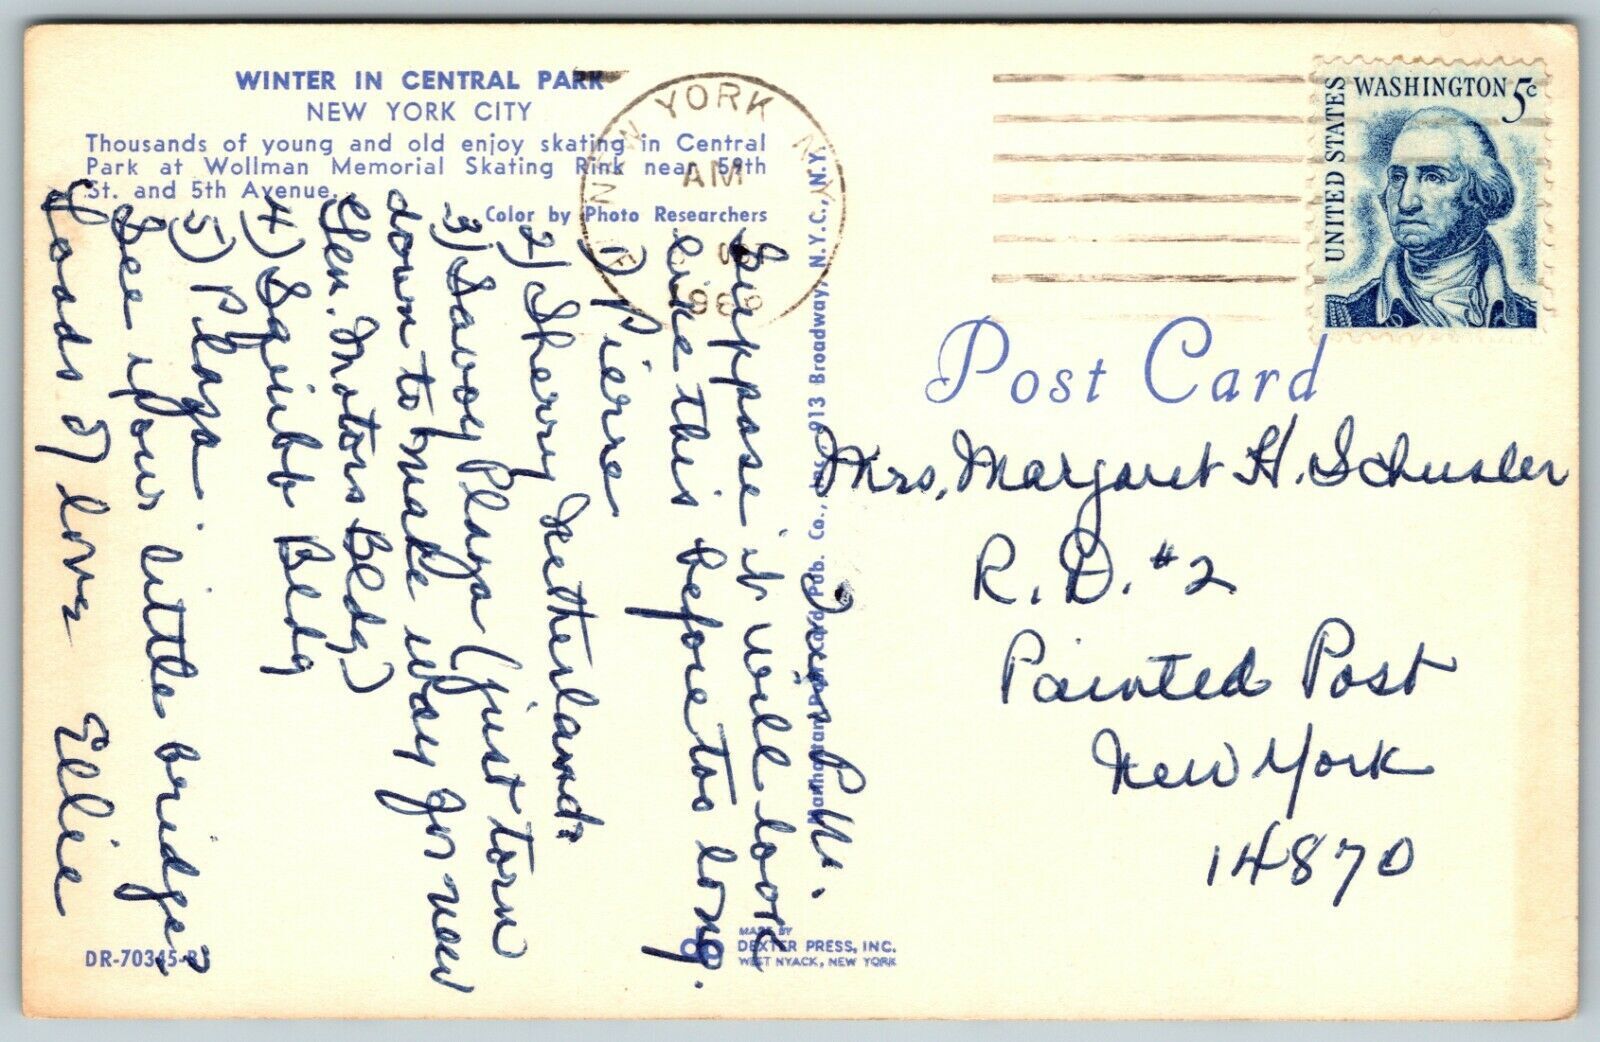 WINTER IN CENTRAL PARK
NEW YORK CITY
Thousands of young and old enjoy skating in Central
Park at Wollman Memorial Skating Rink near 59th
St. and 5th Avenue.
Color by Photo Researchers
NEW YORK N.Y.
AM
196
UNITED STATES
WASHINGTON 5c
Post Card
Mrs. Margaret H. Schusler
R.D. #2
Painted Post
New York
14870
P.M.
Suppose it will look
like this before too long.
1) Pierre
2) Sherry Netherlands
3) Savoy Plaza (just torn
down to make way for new
Gen. Motors Bldg)
4) Squibb Bldg
5) Plaza.
See your little bridge?
Loads of love
Ellie
Pub. Co., Inc., 913 Broadway, N.Y.C., N.Y.
DR-70345-B
MADE BY
DEXTER PRESS, INC.
WEST NYACK, NEW YORK